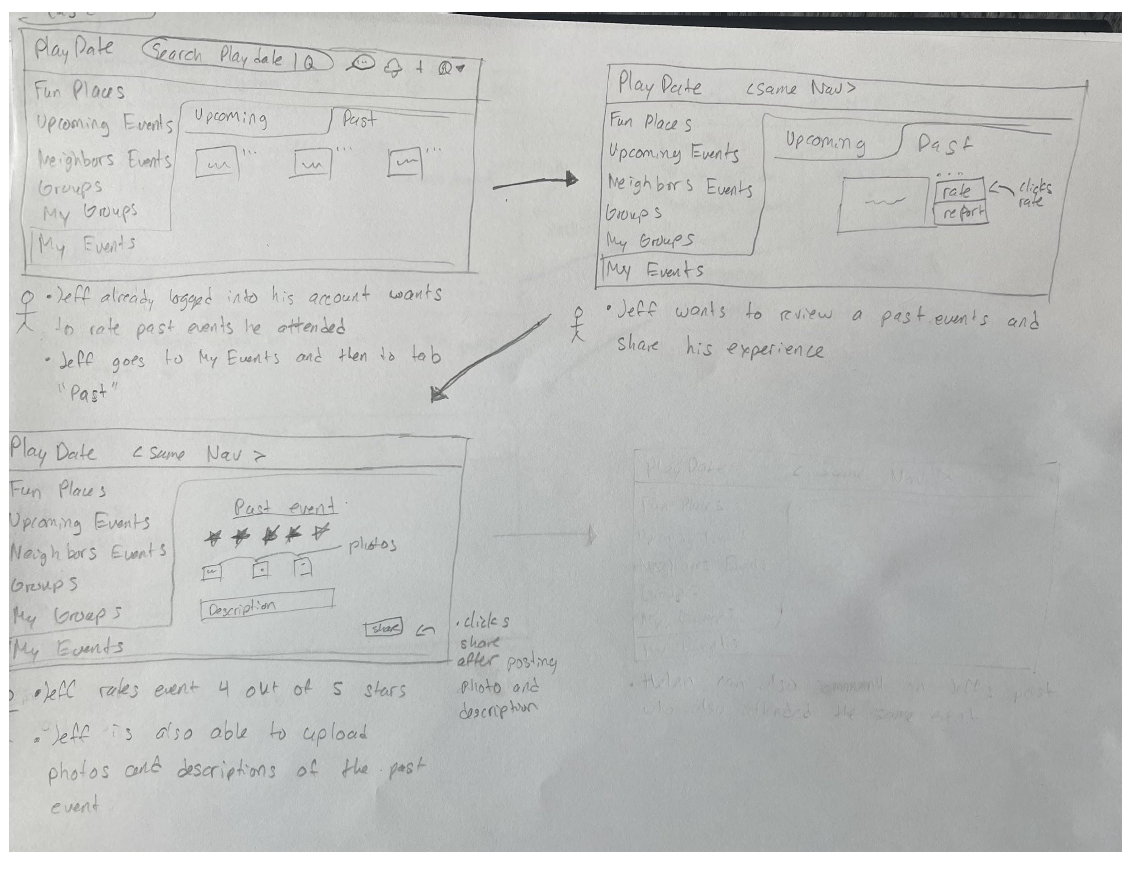 Play Date Search Playdate | Q
Fun Places
Upcoming Events
Neighbors Events
Groups
My Groups
My Events
Upcoming Past
• Jeff already logged into his account wants
to rate past events he attended
• Jeff goes to My Events and then to tab
"Past"
Play Date <Same Nav>
Fun Places
Upcoming Events
Neighbors Events
Groups
My Groups
My Events
Upcoming Past
rate
report
clicks
rate
• Jeff wants to review a past events and
share his experience
Play Date <Same Nav>
Fun Places
Upcoming Events
Neighbors Events
Groups
My Groups
My Events
Past event
photos
Description
share
• clicks
share
after posting
photo and
description
• Jeff rates event 4 out of 5 stars
• Jeff is also able to upload
photos and descriptions of the past
event
Play Date
Fun Places